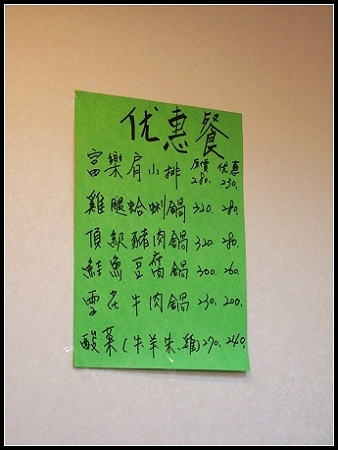 优惠餐
原價 优惠
富樂肩小排 280. 230.
雞腿蛤蜊鍋 320. 280.
頂級豬肉鍋 320. 280.
鮭魚豆腐鍋 300. 260.
雪花牛肉鍋 230. 200.
酸菜(牛.羊.朱.雞) 270. 240.